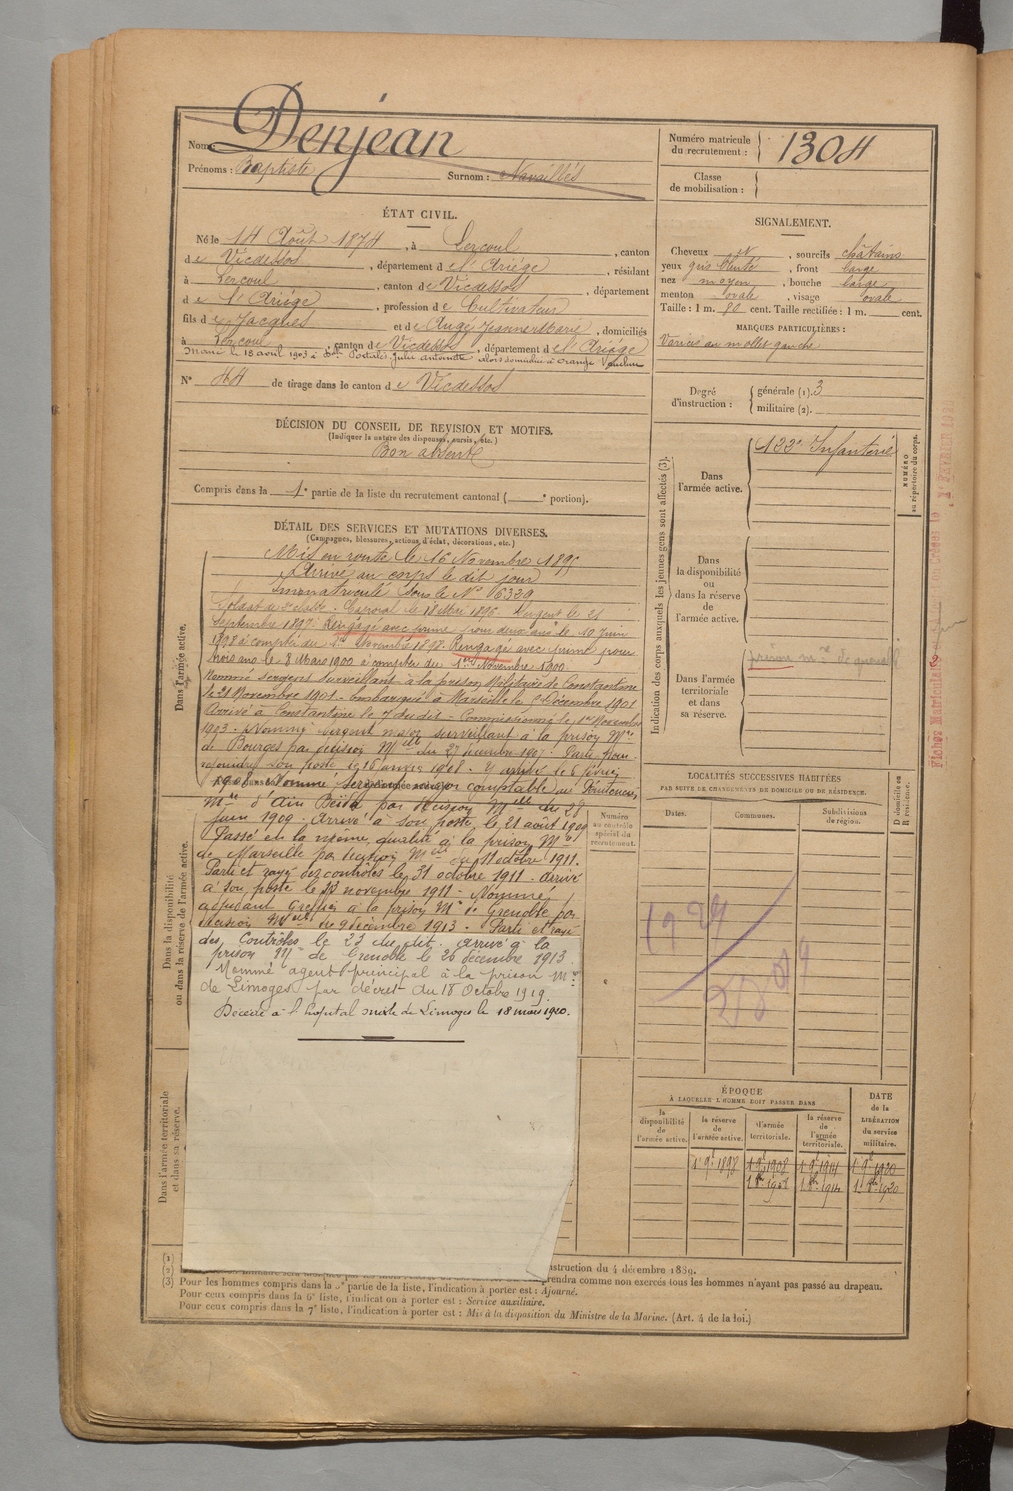 Nom: Denjean
Prénoms: Baptiste Surnom: Navaillès
ÉTAT CIVIL.
Né le 14 Août 1874, à Lercoul, canton
de Vicdessos, département de l'Ariège, résidant
à Lercoul, canton de Vicdessos, département
de l'Ariège, profession de Cultivateur
fils de Jacques et de Augé Jeanne Marie, domiciliés
à Lercoul, canton de Vicdessos, département de l'Ariège
Marié le 18 avril 1903 à Julie antoinette domiciliée à Orange Vaucluse
N° 44 de tirage dans le canton de Vicdessos
DÉCISION DU CONSEIL DE REVISION ET MOTIFS.
(Indiquer la nature des dispenses, sursis, etc.)
Bon absent
Compris dans la 1e partie de la liste du recrutement cantonal ( e portion).
DÉTAIL DES SERVICES ET MUTATIONS DIVERSES.
(Campagnes, blessures, actions d'éclat, décorations, etc.)
Dans l'armée active.
Mis en route le 16 Novembre 1895
Arrivé au corps le dit jour
Immatriculé sous le N° 6339
Soldat de 2e classe. Caporal le 18 Mai 1896. Sergent le 21
Septembre 1897. Rengagé avec prime pour deux ans le 10 Juin
1898 à compter du 1er Novembre 1898. Rengagé avec prime pour
trois ans le 8 Mars 1900 à compter du 1er Novembre 1900.
Nommé sergent surveillant à la prison Militaire de Constantine
le 21 Novembre 1901 - Embarqué à Marseille le 5 Décembre 1901
Arrivé à Constantine le 7 du dit - Commissionné le 1er Novembre
1903. Nommé sergent major surveillant à la prison Mre
de Bourges par décision Mlle du 27 décembre 1907. Parti pour
rejoindre son poste le 16 janvier 1908. Y arrivé le 6 février
1908. Nommé Sergent major comptable au Pénitencier
Mre d'Ain Beïda par décision Mlle du 28
juin 1909. Arrivé à son poste le 21 août 1909
Passé en la même qualité à la prison Mre
de Marseille par décision Mlle du 11 octobre 1911.
Parti et rayé des contrôles le 31 octobre 1911 - Arrivé
à son poste le novembre 1911 - Nommé
adjudant Greffier à la prison Mre de Grenoble par
décision Mlle du 9 décembre 1913. Parti et rayé
des Contrôles le 23 du dit. Arrivé à la
prison Mre de Grenoble le 26 décembre 1913.
Nommé agent principal à la prison Mre
de Limoges par décret du 18 Octobre 1919.
Décédé à l'hôpital mixte de Limoges le 18 mars 1920.
Dans la disponibilité
ou dans la réserve de l'armée active.
Dans l'armée territoriale
et dans sa réserve.
Numéro
au contrôle
spécial du
recrutement.
Numéro matricule
du recrutement: 1304
Classe
de mobilisation:
SIGNALEMENT.
Cheveux et, sourcils châtains
yeux gris teinté, front large
nez moyen, bouche large
menton ovale, visage ovale
Taille: 1 m. 70 cent. Taille rectifiée: 1 m. cent.
MARQUES PARTICULIÈRES:
Varices au mollet gauche
Degré
d'instruction:
générale (1). 3
militaire (2).
Indication des corps auxquels les jeunes gens sont affectés (3).
Dans
l'armée active.
122e Infanterie
NUMÉRO
au répertoire du corps.
Dans
la disponibilité
ou
dans la réserve
de
l'armée active.
Dans l'armée
territoriale
et dans
sa réserve.
LOCALITÉS SUCCESSIVES HABITÉES
PAR SUITE DE CHANGEMENTS DE DOMICILE OU DE RÉSIDENCE.
Dates.
Communes.
Subdivisions
de région.
D domicile ou
R résidence.
ÉPOQUE
À LAQUELLE L'HOMME DOIT PASSER DANS
la
disponibilité
de
l'armée active.
la réserve
de
l'armée active.
l'armée
territoriale.
la réserve
de
l'armée
territoriale.
DATE
de la
LIBÉRATION
du service
militaire.
1 9e 1898 1 9e 1908 1 9e 1914 1 9e 1920
1 8bre 1908 1 8bre 1914 1 8bre 1920
(1)
(2)
instruction du 4 décembre 1889.
prendra comme non exercés tous les hommes n'ayant pas passé au drapeau.
(3) Pour les hommes compris dans la 5e partie de la liste, l'indication à porter est: Ajourné.
Pour ceux compris dans la 6e liste, l'indication à porter est: Service auxiliaire.
Pour ceux compris dans la 7e liste, l'indication à porter est: Mis à la disposition du Ministre de la Marine. (Art. 4 de la loi.)